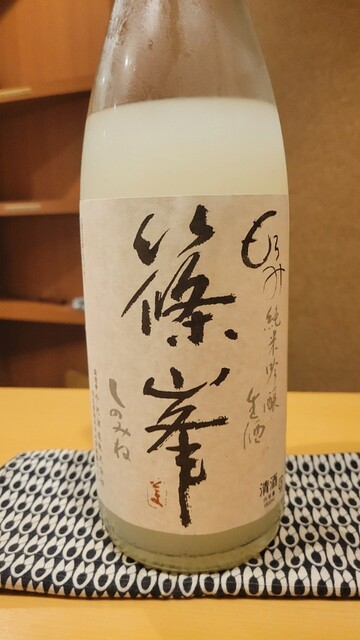 もろみ
純米吟醸
生酒
篠峯
しのみね
清酒